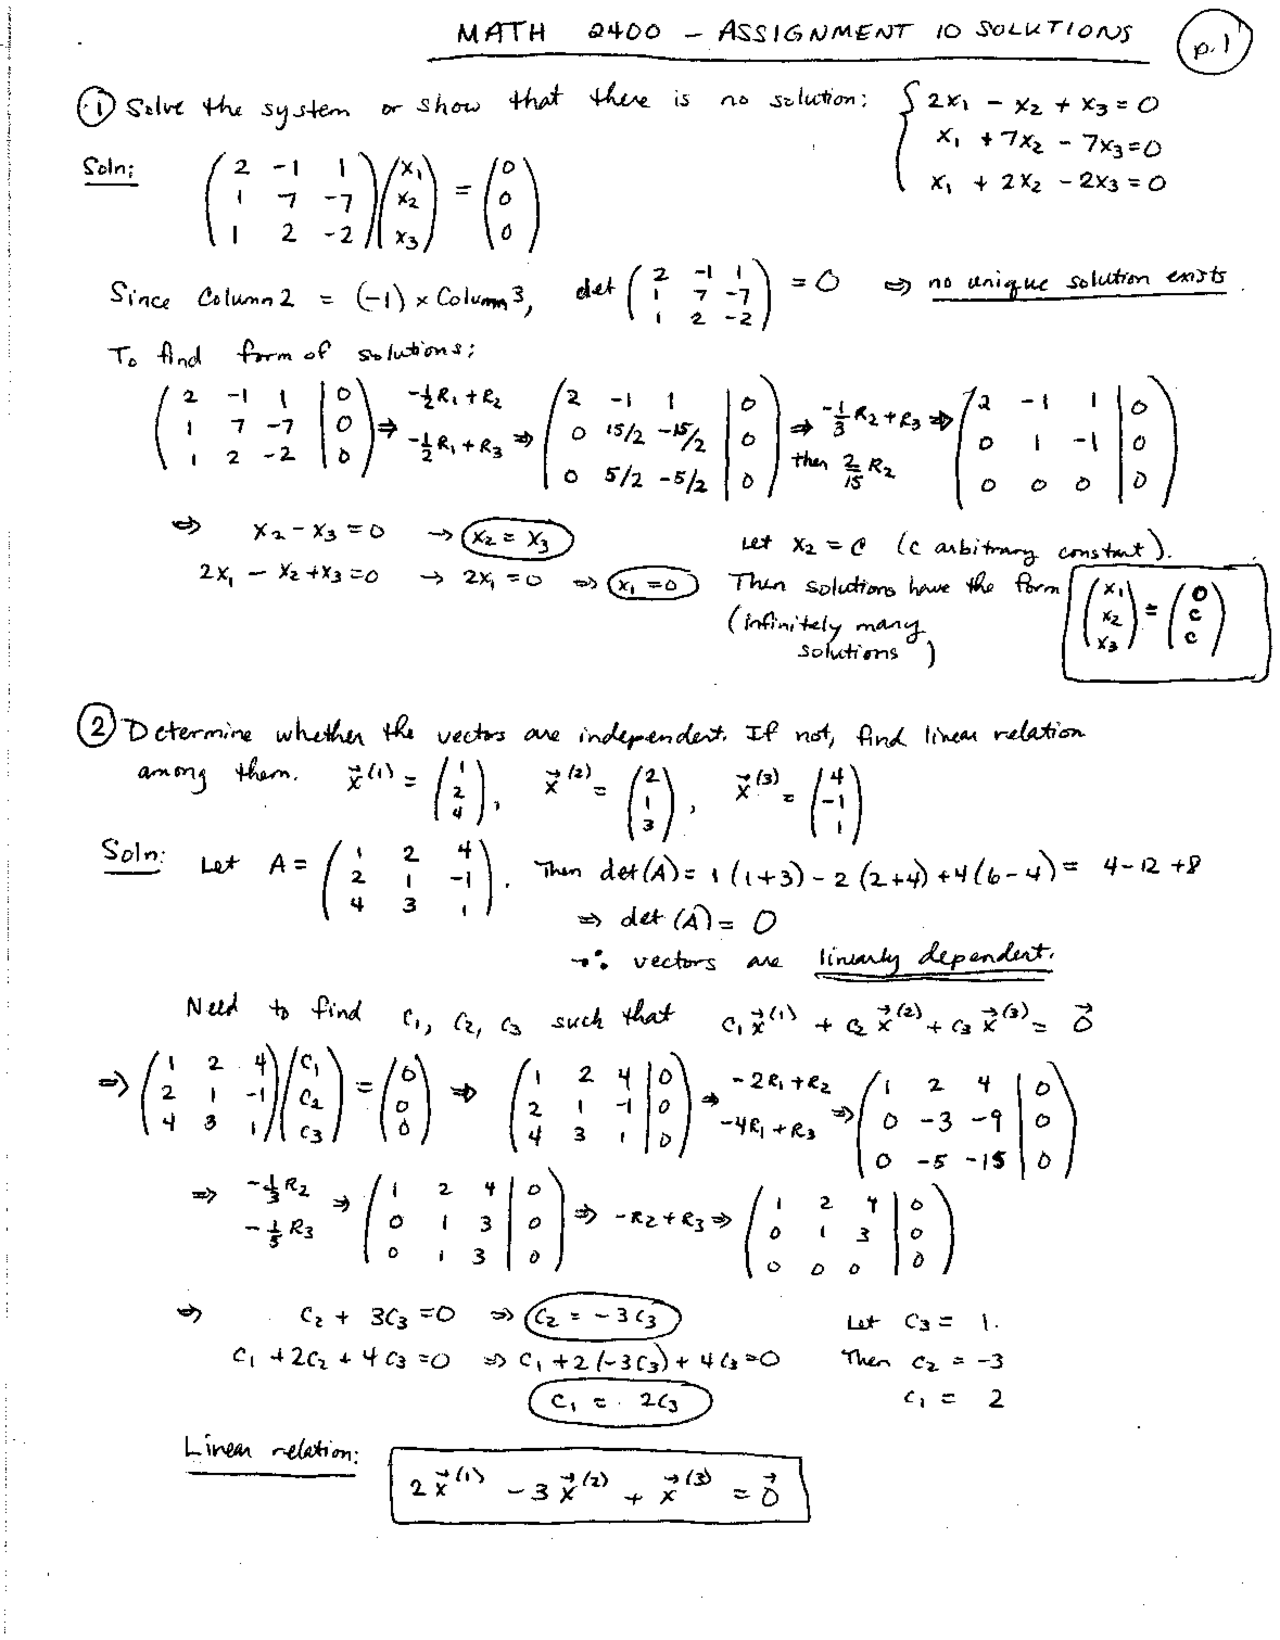 MATH 2400 - ASSIGNMENT 10 SOLUTIONS p.1
① Solve the system or show that there is no solution: { 2x₁ - x₂ + x₃ = 0
x₁ + 7x₂ - 7x₃ = 0
x₁ + 2x₂ - 2x₃ = 0
Soln: (2 -1 1; 1 7 -7; 1 2 -2)(x₁; x₂; x₃) = (0; 0; 0)
Since Column 2 = (-1) × Column 3, det (2 -1 1; 1 7 -7; 1 2 -2) = 0 ⇒ no unique solution exists.
To find form of solutions:
(2 -1 1 | 0; 1 7 -7 | 0; 1 2 -2 | 0) ⇒ -½R₁ + R₂ -½R₁ + R₃ ⇒ (2 -1 1 | 0; 0 15/2 -15/2 | 0; 0 5/2 -5/2 | 0) ⇒ -⅓R₂ + R₃ then 2/15 R₂ ⇒ (2 -1 1 | 0; 0 1 -1 | 0; 0 0 0 | 0)
⇒ x₂ - x₃ = 0 → x₂ = x₃ Let x₂ = c (c arbitrary constant).
2x₁ - x₂ + x₃ = 0 → 2x₁ = 0 ⇒ x₁ = 0 Then solutions have the form (x₁; x₂; x₃) = (0; c; c)
(infinitely many
solutions)
② Determine whether the vectors are independent. If not, find linear relation
among them. x⃗⁽¹⁾ = (1; 2; 4), x⃗⁽²⁾ = (2; 1; 3), x⃗⁽³⁾ = (4; -1; 1)
Soln: Let A = (1 2 4; 2 1 -1; 4 3 1). Then det(A) = 1(1+3) - 2(2+4) + 4(6-4) = 4-12+8
⇒ det(A) = 0
→∴ vectors are linearly dependent.
Need to find c₁, c₂, c₃ such that c₁x⃗⁽¹⁾ + c₂x⃗⁽²⁾ + c₃x⃗⁽³⁾ = 0⃗
⇒ (1 2 4; 2 1 -1; 4 3 1)(c₁; c₂; c₃) = (0; 0; 0) ⇒ (1 2 4 | 0; 2 1 -1 | 0; 4 3 1 | 0) ⇒ -2R₁ + R₂ -4R₁ + R₃ ⇒ (1 2 4 | 0; 0 -3 -9 | 0; 0 -5 -15 | 0)
⇒ -⅓R₂ -⅕R₃ ⇒ (1 2 4 | 0; 0 1 3 | 0; 0 1 3 | 0) ⇒ -R₂ + R₃ ⇒ (1 2 4 | 0; 0 1 3 | 0; 0 0 0 | 0)
⇒ c₂ + 3c₃ = 0 ⇒ c₂ = -3c₃ Let c₃ = 1.
c₁ + 2c₂ + 4c₃ = 0 ⇒ c₁ + 2(-3c₃) + 4c₃ = 0 Then c₂ = -3
c₁ = 2c₃ c₁ = 2
Linear relation: 2x⃗⁽¹⁾ - 3x⃗⁽²⁾ + x⃗⁽³⁾ = 0⃗